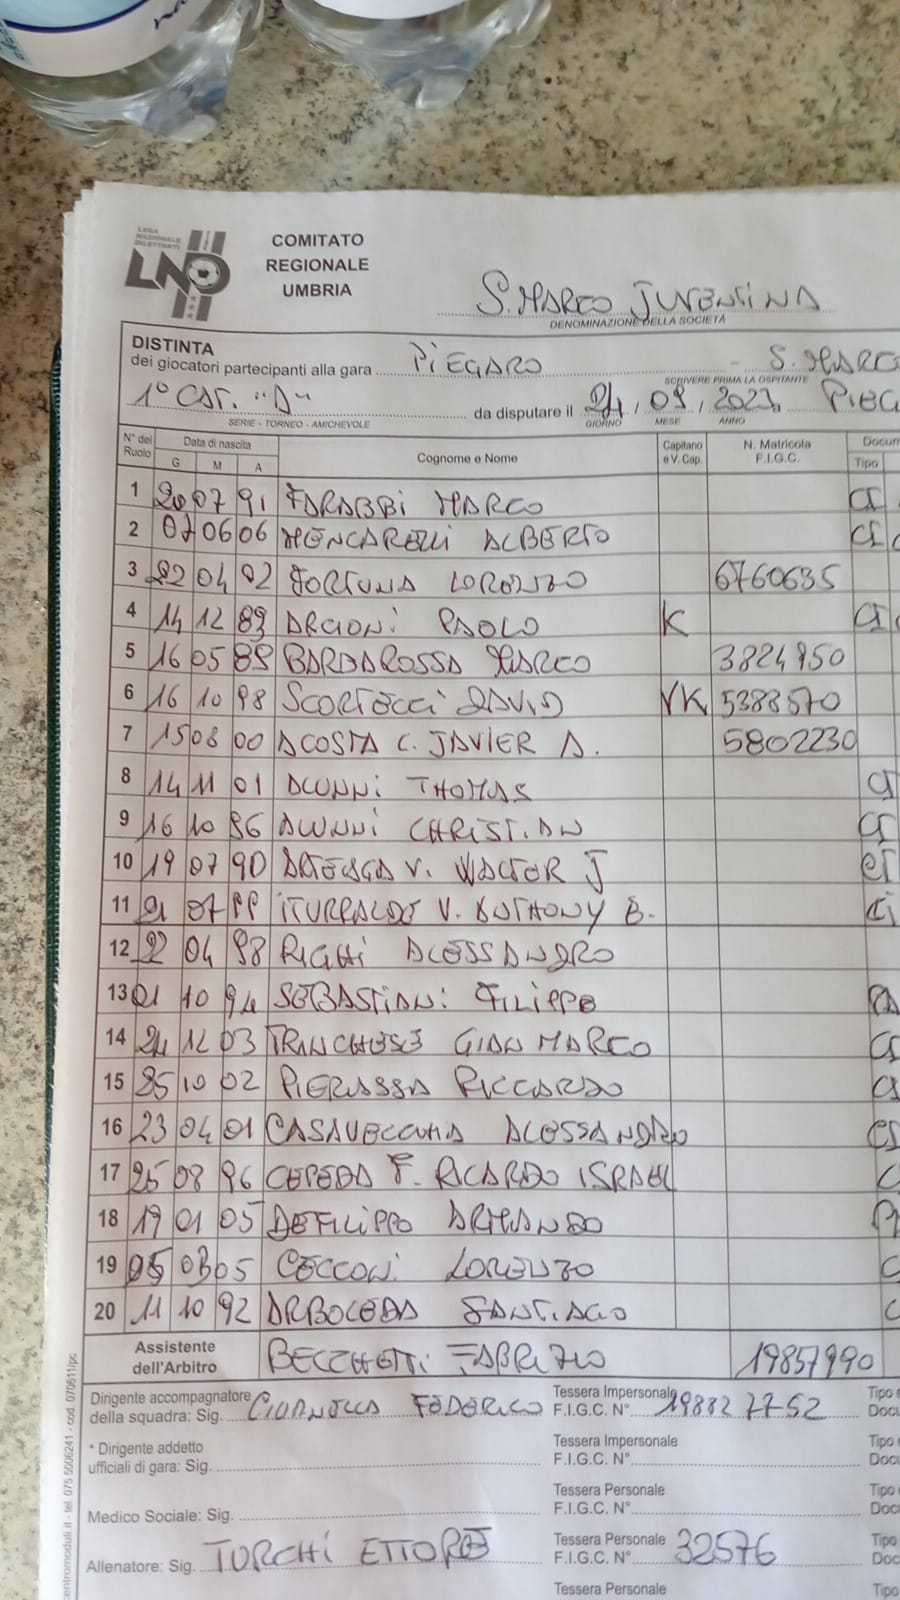 LEGA
NAZIONALE
DILETTANTI
LND
COMITATO
REGIONALE
UMBRIA
S. MARCO JUVENTINA
DENOMINAZIONE DELLA SOCIETÀ
DISTINTA
dei giocatori partecipanti alla gara PIEGARO - S. MARCO
SCRIVERE PRIMA LA OSPITANTE
1° CAT. "A" da disputare il 24 / 09 / 2023 a PIEG
SERIE - TORNEO - AMICHEVOLE GIORNO MESE ANNO
N° del Ruolo Data di nascita G M A Cognome e Nome Capitano e V. Cap. N. Matricola F.I.G.C. Docum Tipo
1 20 07 91 FARABBI MARCO CI
2 07 06 06 MENCARELLI ALBERTO CI
3 22 04 02 FORTUNA LORENZO 6760635
4 14 12 89 ARCIONI PAOLO K CI
5 16 05 89 BARBAROSSA MARCO 3824950
6 16 10 98 SCORTECCI DAVID VK 5388570
7 15 08 00 ACOSTA C. JAVIER A. 5802230
8 14 11 01 ALUNNI THOMAS CI
9 16 10 96 ALUNNI CHRISTIAN CI
10 19 07 90 V. WALTER J CI
11 21 07 99 ITURRALDE V. ANTHONY B. CI
12 22 04 98 RIGHI ALESSANDRO
13 01 10 94 SEBASTIANI FILIPPO PA
14 24 12 03 TRANCHESE GIAN MARCO CI
15 25 10 02 RICCARDO CI
16 23 04 01 CASAVECCHIA ALESSANDRO CI
17 25 08 96 CEPEDA F. RICARDO ISRAEL C
18 19 01 05 DE FILIPPO ARMANDO
19 05 03 05 CECCONI LORENZO C
20 11 10 92 ARBOLEDA SANTIAGO C
Assistente dell'Arbitro BECCHETTI FABRIZIO 19857990
Dirigente accompagnatore della squadra: Sig. FEDERICO Tessera Impersonale F.I.G.C. N° 198827752 Tipo Docu
* Dirigente addetto ufficiali di gara: Sig. Tessera Impersonale F.I.G.C. N° Tipo Docu
Medico Sociale: Sig. Tessera Personale F.I.G.C. N° Tipo Doc
Allenatore: Sig. TURCHI ETTORE Tessera Personale F.I.G.C. N° 32576 Tipo Doc
Tessera Personale
centromoduli.it - tel. 075 5006241 - cod. 070611/pc